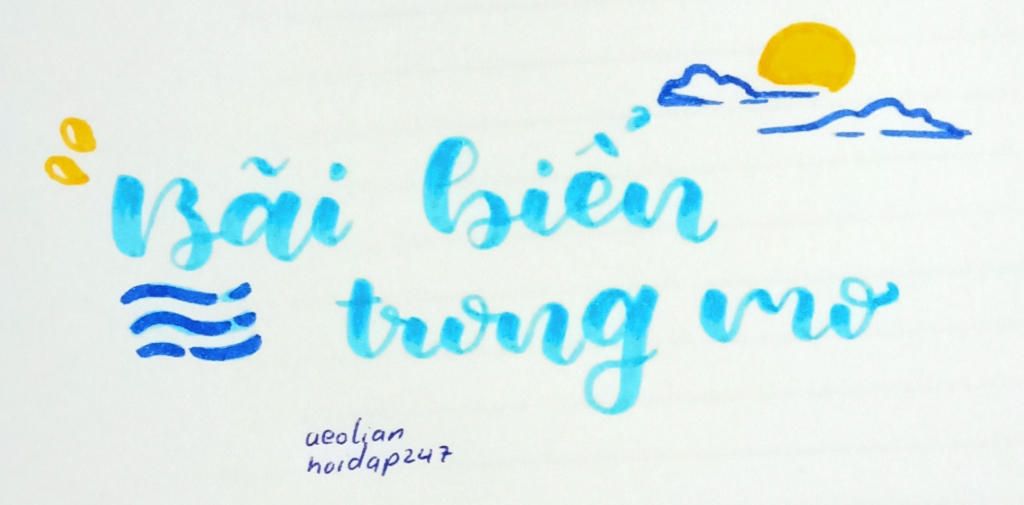 Bãi biển
trong mơ
aeolian
hoidap247